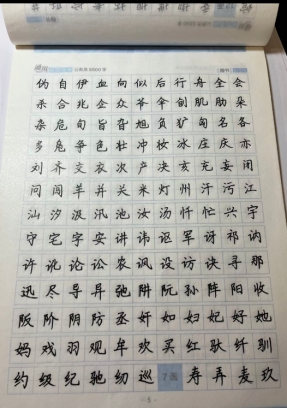 伪自伊血向似后行舟全会
杀合兆企众爷伞创肌肋朵
杂危旬旨旮旭负犷匈名各
多争色壮冲妆冰庄庆亦
刘齐交衣次产决亥充妄闭
问闯羊并关米灯州汗污江
汕汐汲汛池汝汤忖忙兴宇
守宅字安讲讳讴军讶祁讷
许讹论讼农讽设访诀寻那
迅尽导异弛阱阮孙阵阳收
阪阶阴防丞奸如妇妃好她
妈戏羽观牟欢买红驮纤驯
约级纪驰纫巡7画寿弄麦玖
-5-